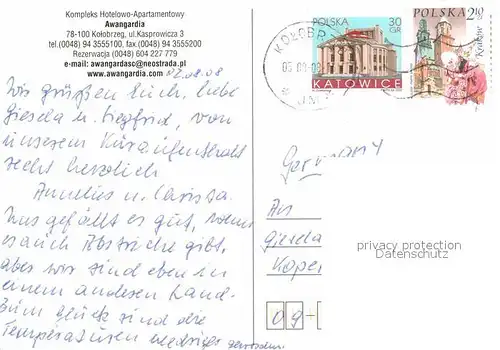 Kompleks Hotelowo-Apartamentowy
Awangardia
78-100 Kołobrzeg, ul.Kasprowicza 3
tel.(0048) 94 3555100, fax. (0048) 94 3555200
Rezerwacja (0048) 604 227 779
e-mail: awangardasc@neostrada.pl
www.awangardia.com
02.09.08
Wir grüßen Euch, liebe
Giesela u. Siegfried, von
unserem Kuraufenthalt
recht herzlich
Annelies u. Christa.
Uns gefällt es gut, wenn
es auch Abstriche gibt,
aber wir sind eben in
einem anderen Land.
Zum Glück sind die
Temperaturen niedriger geworden
POLSKA 30 GR
KATOWICE
POLSKA 2,10
Kraków
KOŁOBRZ
Germany
An
Giesela
Koper
09-
privacy protection
Datenschutz